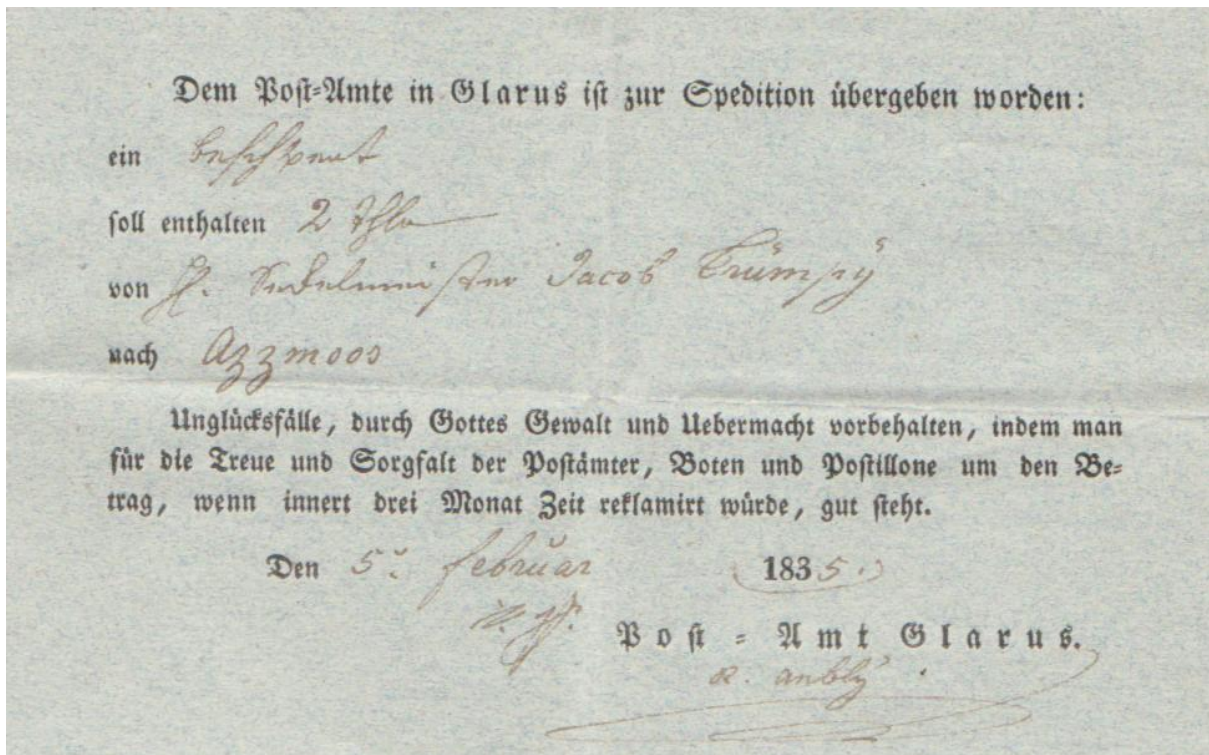 Dem Post-Amte in Glarus ist zur Spedition übergeben worden:
ein
soll enthalten 2
von H. Sekelmeister Jacob Trümpÿ
nach Azzmoos
Unglücksfälle, durch Gottes Gewalt und Uebermacht vorbehalten, indem man
für die Treue und Sorgfalt der Postämter, Boten und Postillone um den Be-
trag, wenn innert drei Monat Zeit reklamirt würde, gut steht.
Den 5. februar 1835.
Post-Amt Glarus.